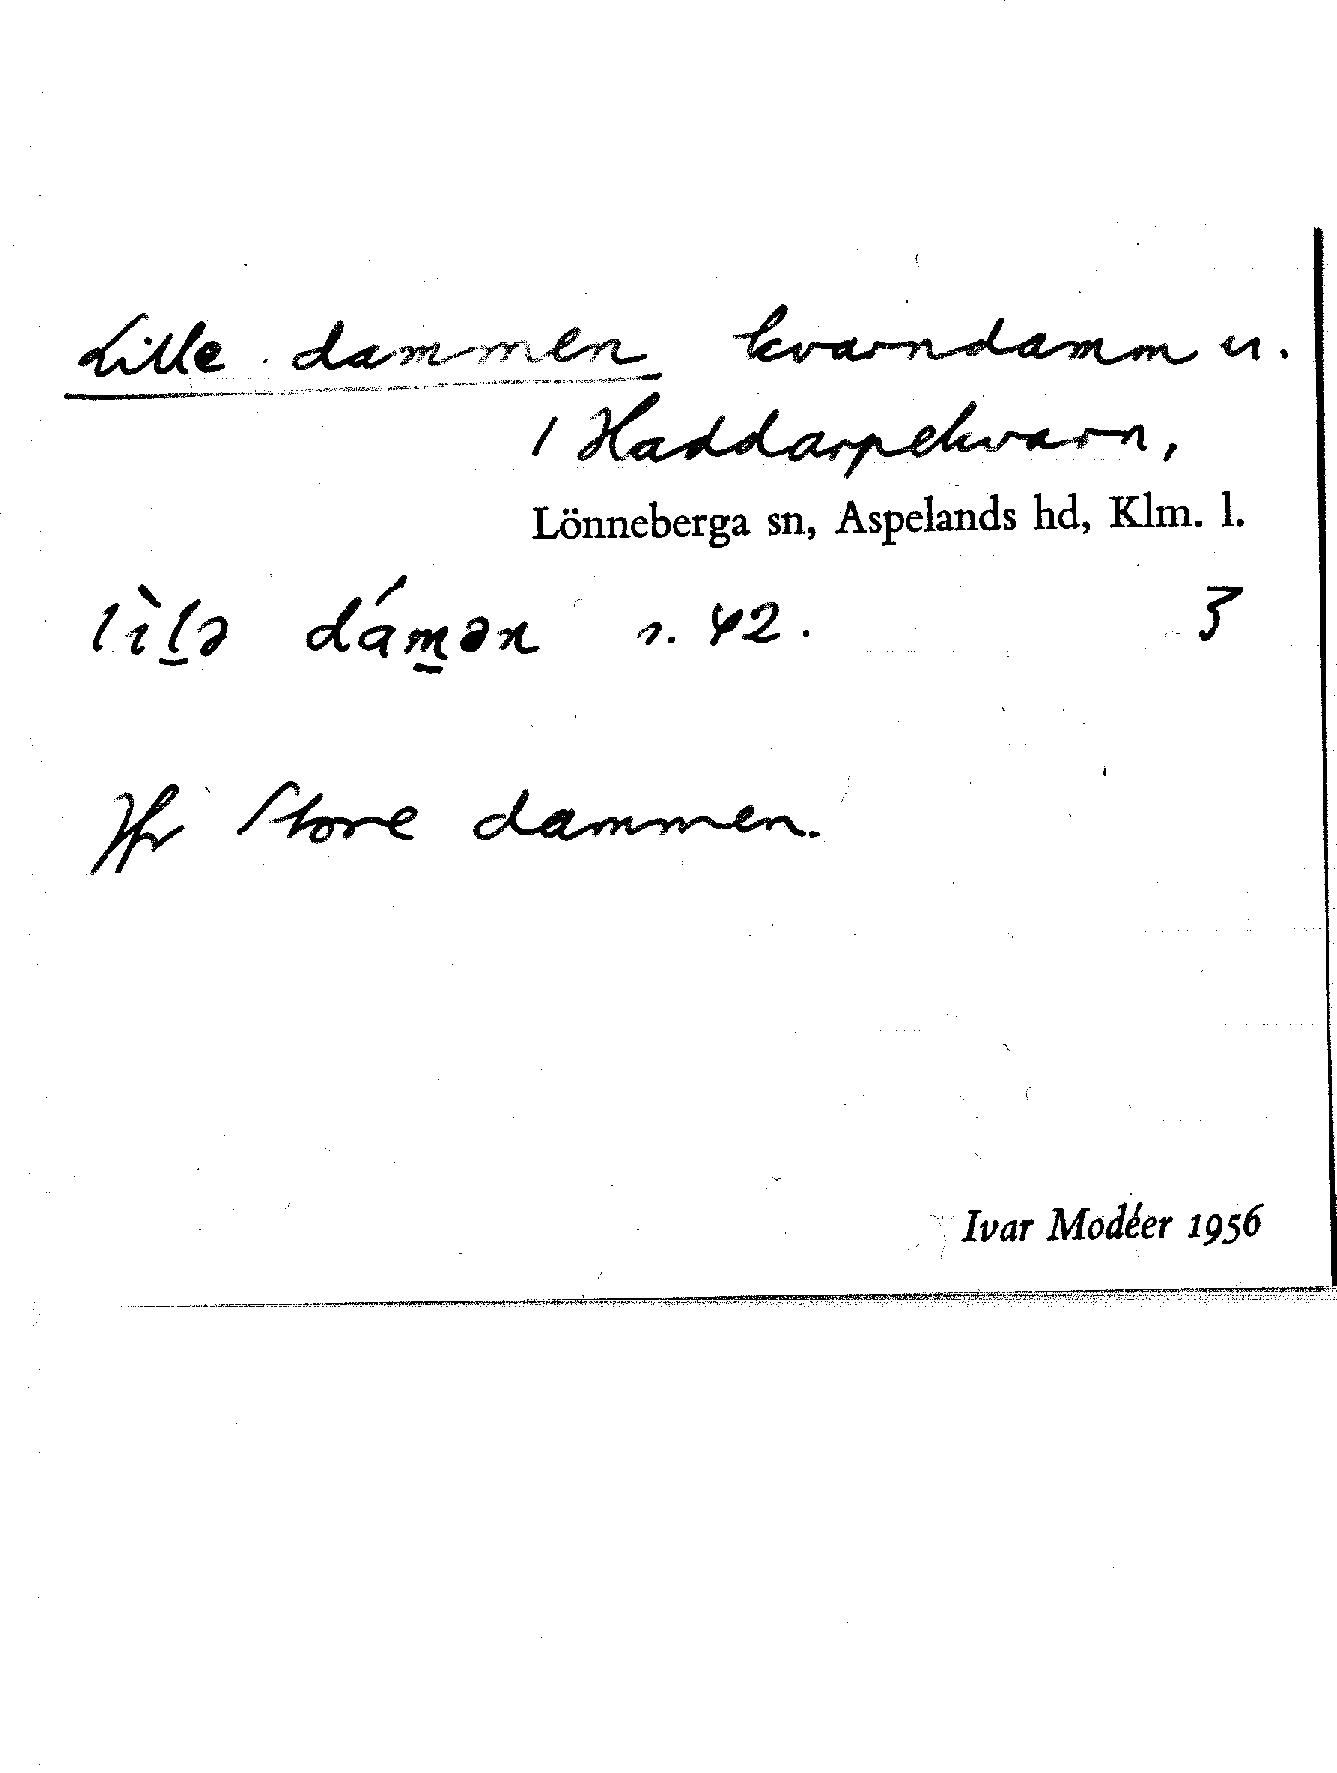 Lille dammen kvarndamm u.
1 Haddarpekvarn,
Lönneberga sn, Aspelands hd, Klm. l.
lìl̠ə dám̠ən s. 42. 3
Jfr Store dammen.
Ivar Modéer 1956